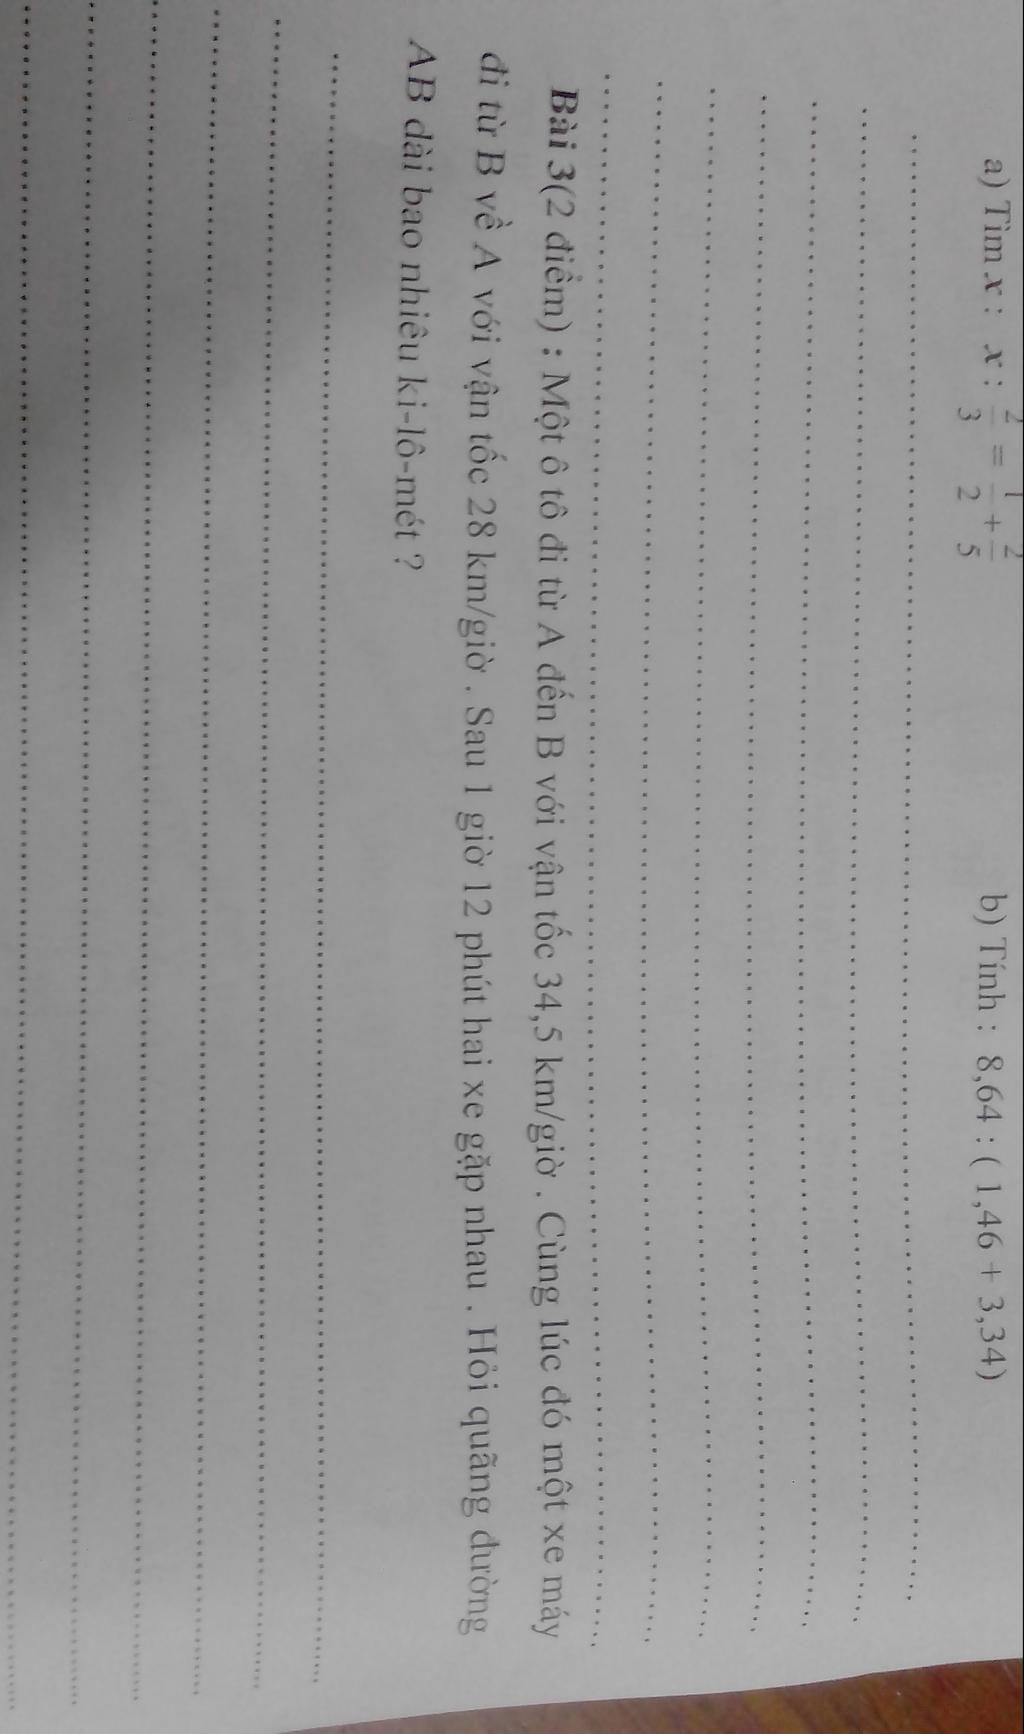 a) Tìm x : x : 2/3 = 1/2 + 2/5 b) Tính : 8,64 : ( 1,46 + 3,34)
Bài 3(2 điểm) : Một ô tô đi từ A đến B với vận tốc 34,5 km/giờ . Cùng lúc đó một xe máy
đi từ B về A với vận tốc 28 km/giờ . Sau 1 giờ 12 phút hai xe gặp nhau . Hỏi quãng đường
AB dài bao nhiêu ki-lô-mét ?